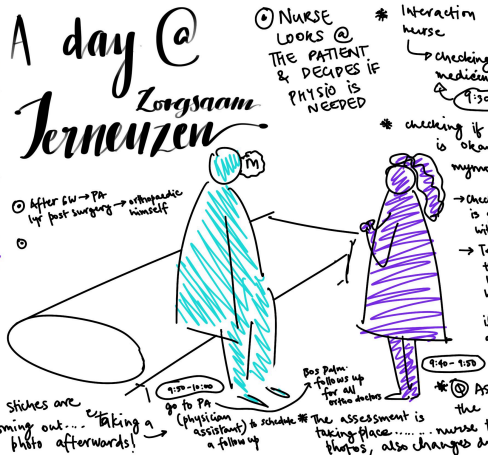 A day @
Zorgsaam
Terneuzen
NURSE
LOOKS @
THE PATIENT
& DECIDES IF
PHYSIO IS
NEEDED
* Interaction
nurse
→ checking
medicin
9:30
* checking if
is okay
mymo
→ chec
is
wit
→ T
After 6W → PA
1yr post surgery → orthopaedic
himself
M
9:40 - 9:50
Stiches are
ming out.... Taking a
photo afterwards!
9:50-10:00
go to PA
(physician
assistant) to schedule
a follow up
Bos Palm.
follows up
for all
ortho doctors
* The assessment is
taking place........ nurse t
photos, also changes d
* Ass
the